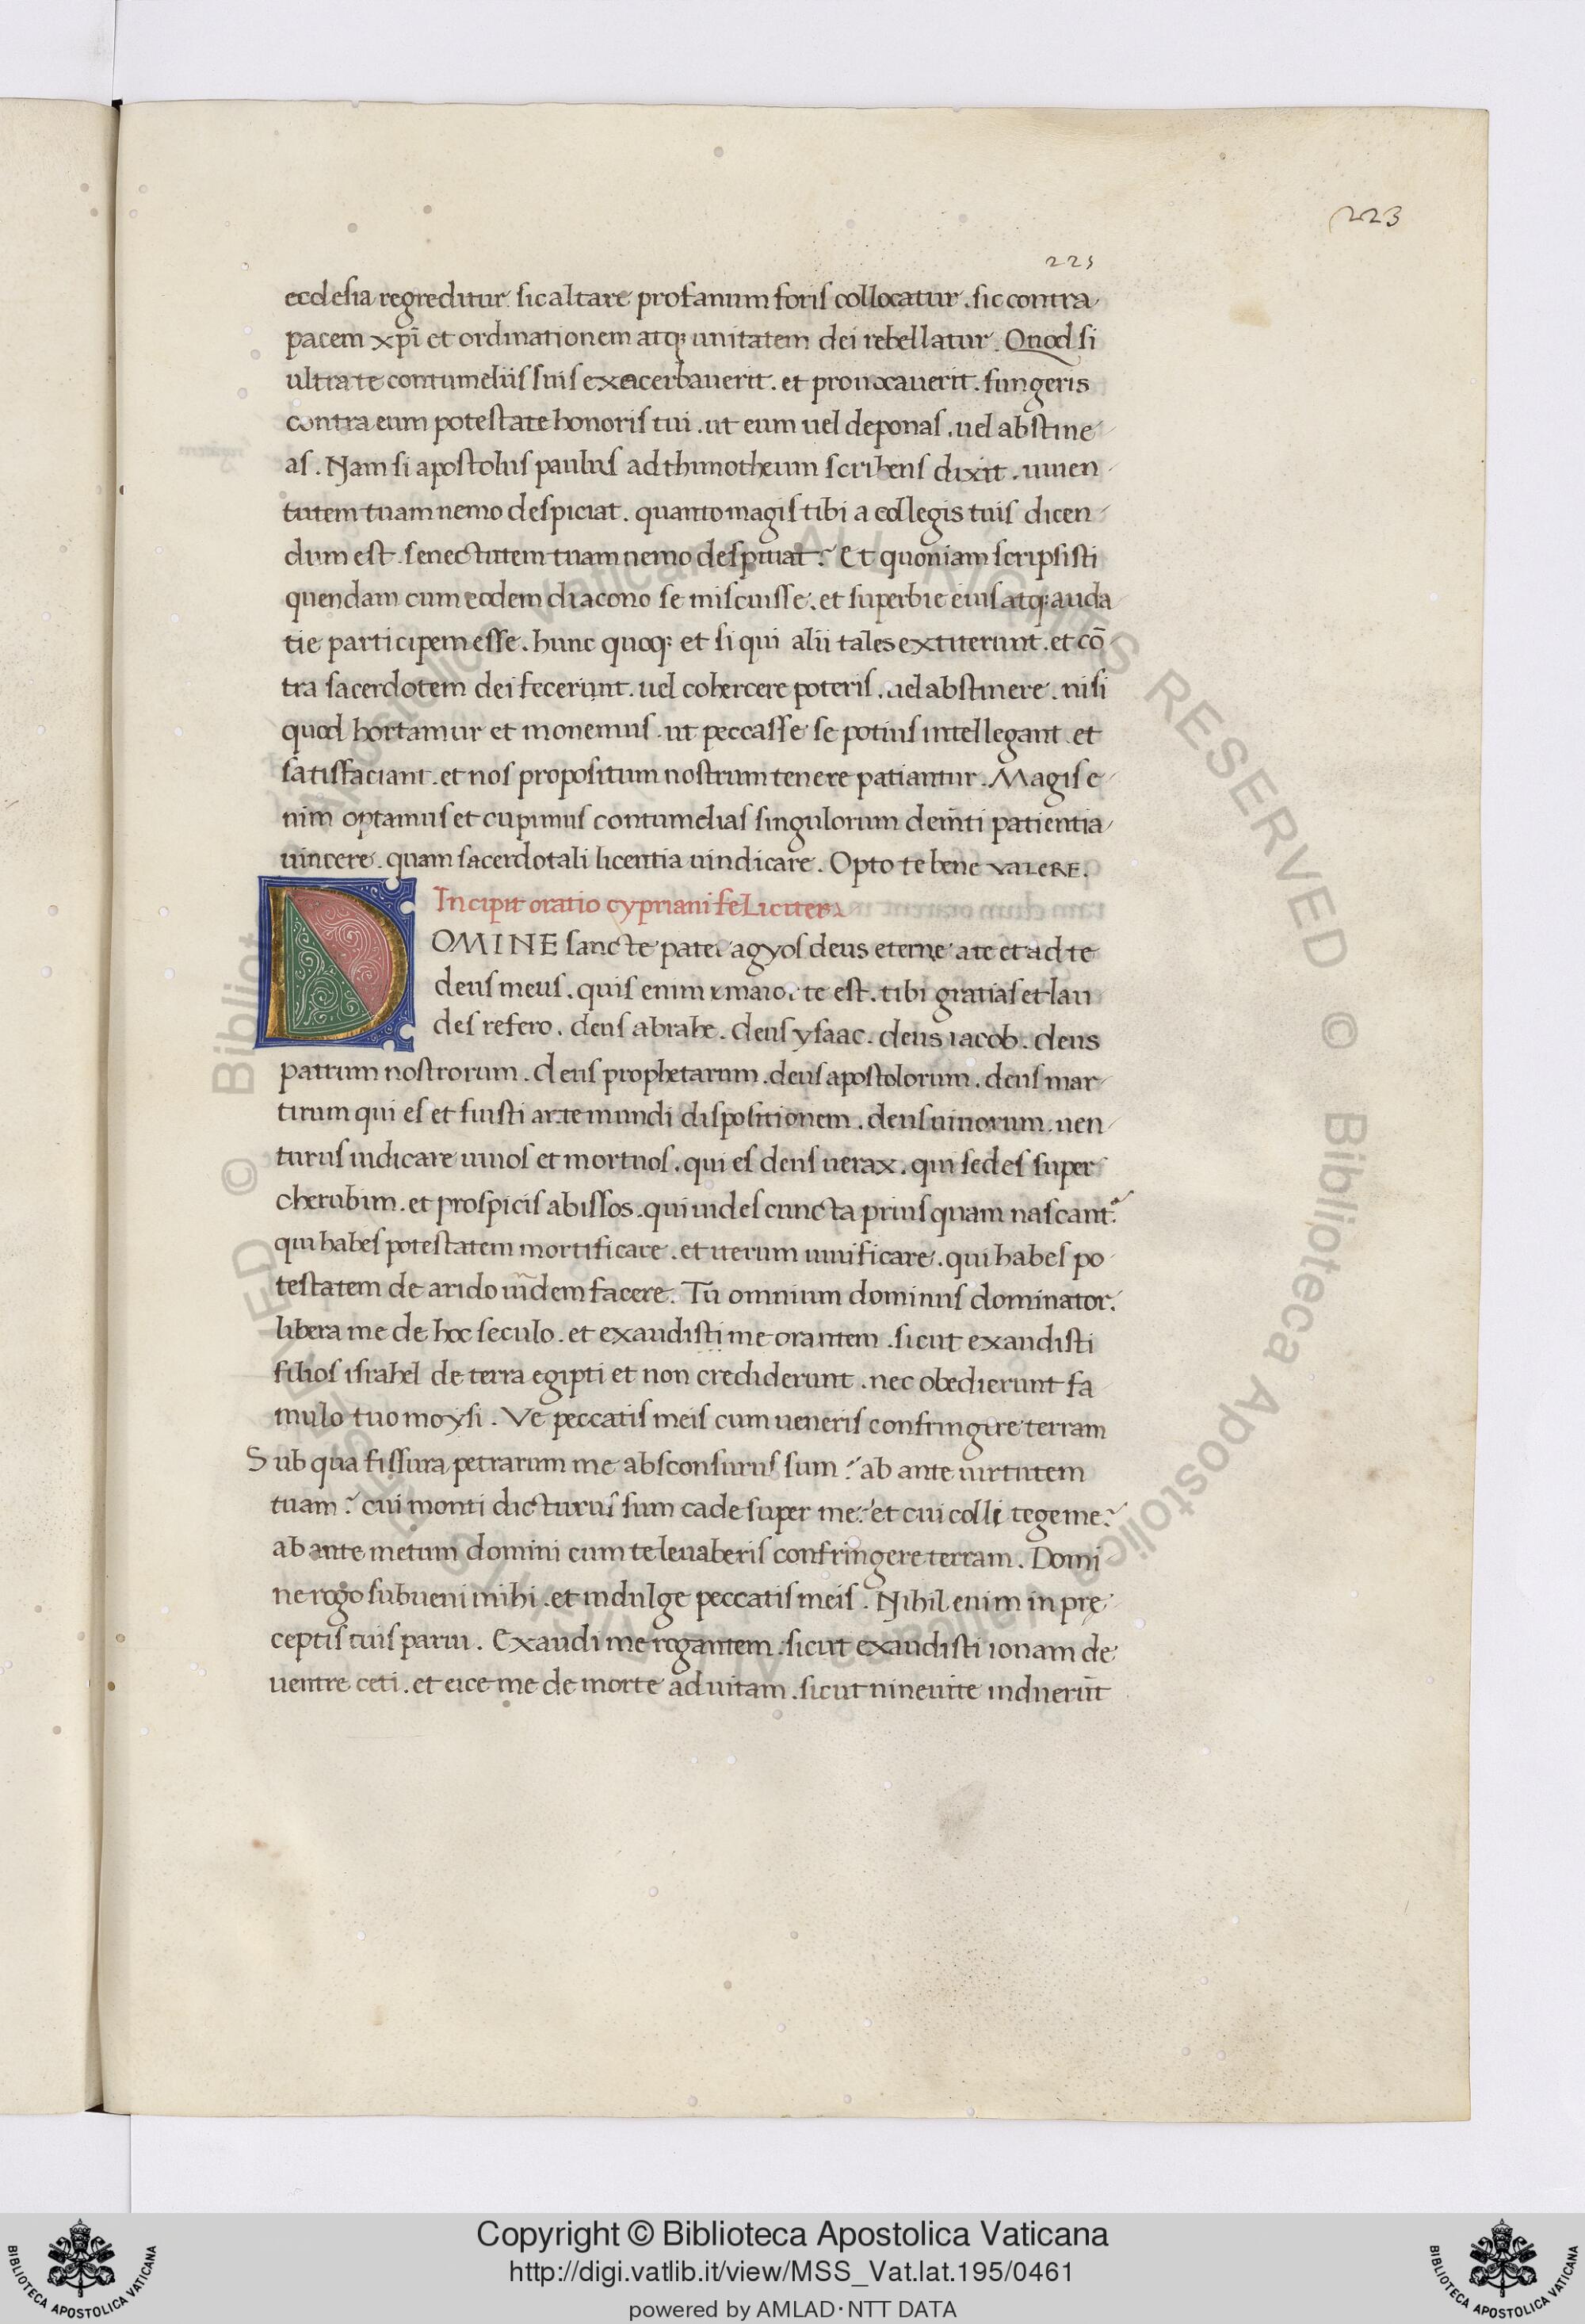 223
225
ecclesia regreditur. sic altare profanum foris collocatur. sic contra
pacem xp̄i et ordinationem atq; unitatem dei rebellatur. Quod si
ultra te contumeliis suis exacerbauerit. et prouocauerit. fungeris
contra eum potestate honoris tui. ut eum uel deponas. uel abstine
as. Nam si apostolus paulus ad thimotheum scribens dixit. iuuen
tutem tuam nemo despiciat. quanto magis tibi a collegis tuis dicen
dum est. senectutem tuam nemo despiciat? Et quoniam scripsisti
quendam cum eodem diacono se miscuisse. et superbie eius atq; auda
tie participem esse. hunc quoq; et si qui alii tales extiterunt. et cō
tra sacerdotem dei fecerunt. uel cohercere poteris. uel abstinere. nisi
quod hortamur et monemus. ut peccasse se potius intellegant. et
satisfaciant. et nos propositum nostrum tenere patiantur. Magis e
nim optamus et cupimus contumelias singulorum clemti patientia
uincere. quam sacerdotali licentia uindicare. Opto te bene VALERE.
Incipit oratio cypriani feLiciter.
OMINE sancte pater agyos deus eterne ate et ad te
deus meus. quis enim maior te est. tibi gratias et lau
des refero. deus abrahe. deus ysaac. deus iacob. deus
patrum nostrorum. deus prophetarum. deus apostolorum. deus mar
tirum qui es et fuisti ante mundi dispositionem. deus uiuorum. uen
turus iudicare uiuos et mortuos. qui es deus uerax. qui sedes super
cherubim. et prospicis abissos. qui uides cuncta prius quam nascant.
qui habes potestatem mortificare. et iterum uiuificare. qui habes po
testatem de arido uiridem facere. Tu omnium dominus dominator.
libera me de hoc seculo. et exaudisti me orantem. sicut exaudisti
filios israhel de terra egipti et non crediderunt. nec obedierunt fa
mulo tuo moysi. Ve peccatis meis cum ueneris confringere terram
Sub qua fissura petrarum me absconsurus sum? ab ante uirtutem
tuam? cui monti dicturus sum cade super me? et cui colli tege me?
ab ante metum domini cum te leuaberis confringere terram. Domi
ne rogo subueni mihi. et indulge peccatis meis. Nihil enim in prę
ceptis tuis parui. Exaudi me rogantem. sicut exaudisti ionam de
uentre ceti. et eice me de morte ad uitam. sicut nineuite induerūt
© Biblioteca Apostolica Vaticana ALL RIGHTS RESERVED © Biblioteca Apostolica Vaticana ALL RIGHTS RESERVED
Copyright © Biblioteca Apostolica Vaticana
http://digi.vatlib.it/view/MSS_Vat.lat.195/0461
powered by AMLAD·NTT DATA
BIBLIOTECA APOSTOLICA VATICANA
BIBLIOTECA APOSTOLICA VATICANA